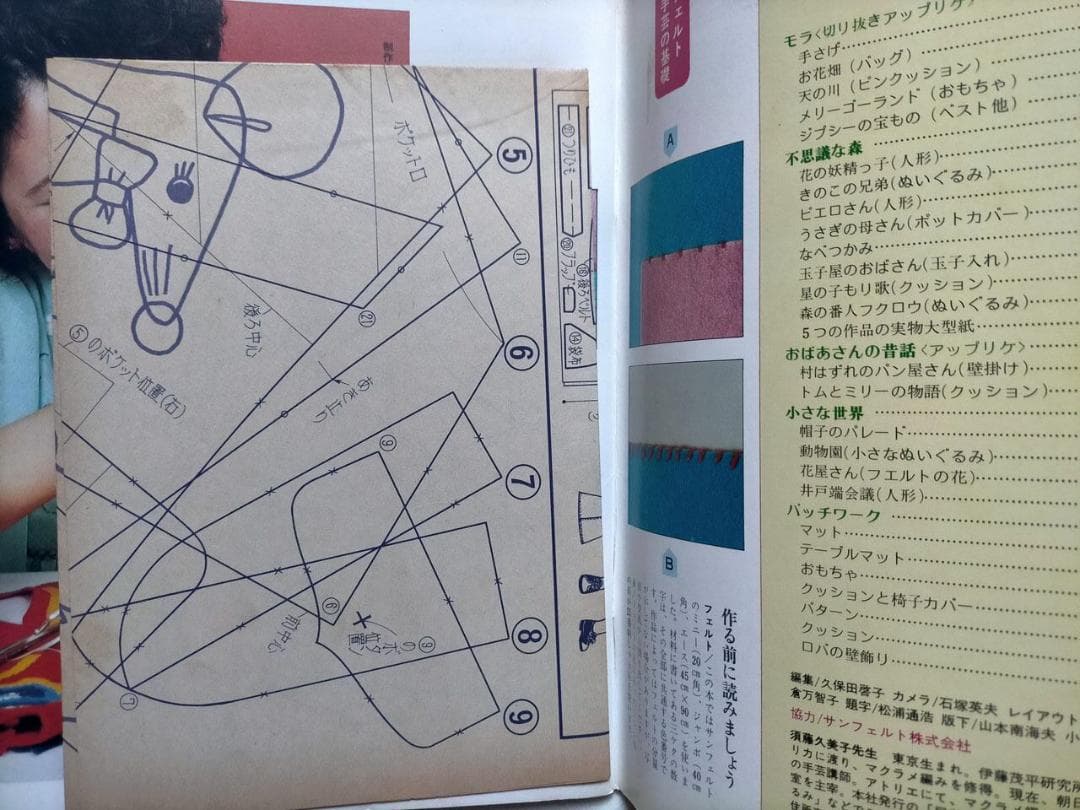 制作
ポケット口
5
⑪
㉑
後ろ中心
⑤のポケット位置(右)
あき止り
6
⑨
7
⑥
⑨のポケ位置
前中心
8
⑦
9
⑳つりひも
⑱後ろベルト
袋布
フェルト
手芸の基礎
A
B
作る前に読みましょう
フェルト/この本ではサンフェルト
のミニー(20cm角)、ジャンボ(40cm
角)、エース(45cm×90cm)を使いま
した。材料に書いてある三ケタの数
字は、その全部に共通する色番号で
モラ〈切り抜きアップリケ〉
手さげ
お花畑(バッグ)
天の川(ピンクッション)
メリーゴーランド(おもちゃ)
ジプシーの宝もの(ベスト他)
不思議な森
花の妖精っ子(人形)
きのこの兄弟(ぬいぐるみ)
ピエロさん(人形)
うさぎの母さん(ポットカバー)
なべつかみ
玉子屋のおばさん(玉子入れ)
星の子もり歌(クッション)
森の番人フクロウ(ぬいぐるみ)
5つの作品の実物大型紙
おばあさんの昔話〈アップリケ〉
村はずれのパン屋さん(壁掛け)
トムとミリーの物語(クッション)
小さな世界
帽子のパレード
動物園(小さなぬいぐるみ)
花屋さん(フエルトの花)
井戸端会議(人形)
パッチワーク
マット
テーブルマット
おもちゃ
クッションと椅子カバー
パターン
クッション
ロバの壁飾り
編集/久保田啓子 カメラ/石塚英夫 レイアウト
倉万智子 題字/松浦通浩 版下/山本南海夫 小
協力/サンフェルト株式会社
須藤久美子先生 東京生まれ。伊藤茂平研究所
リカに渡り、マクラメ編みを修得。現在、朝日
の手芸講師。アトリエにて、
室を主宰。本社発行の
るみ」など